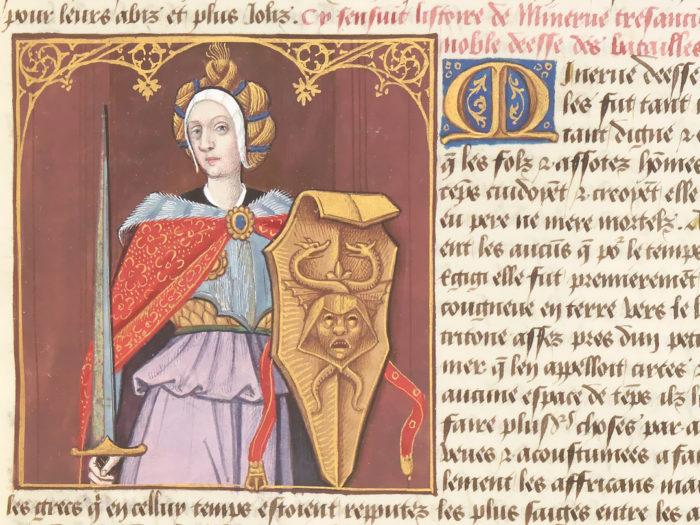 pour leurs abiz et plus Joliz. Cy sensuit listoire de Minerue tres
noble deesse des batailles
Minerue deesse
les fut tant
tant digne &
q̃ les folz & assotez hõmes
tẽps cuidoient & creoyẽt elle
eu pere ne mere mortelz.
ent les aucũs q̃ po² le temps
Egigi elle fut premierement
cougneue en terre vers le l
tritone assez pres dun peti
mer q̃ len appelloit cirẽes
aucune espace de tẽps ilz l
faire plus²s choses par a
veues & acoustumees a fai
lement les affricans mai
les grecs q̃ en celluy temps estoient repputez les plus saiges entre les